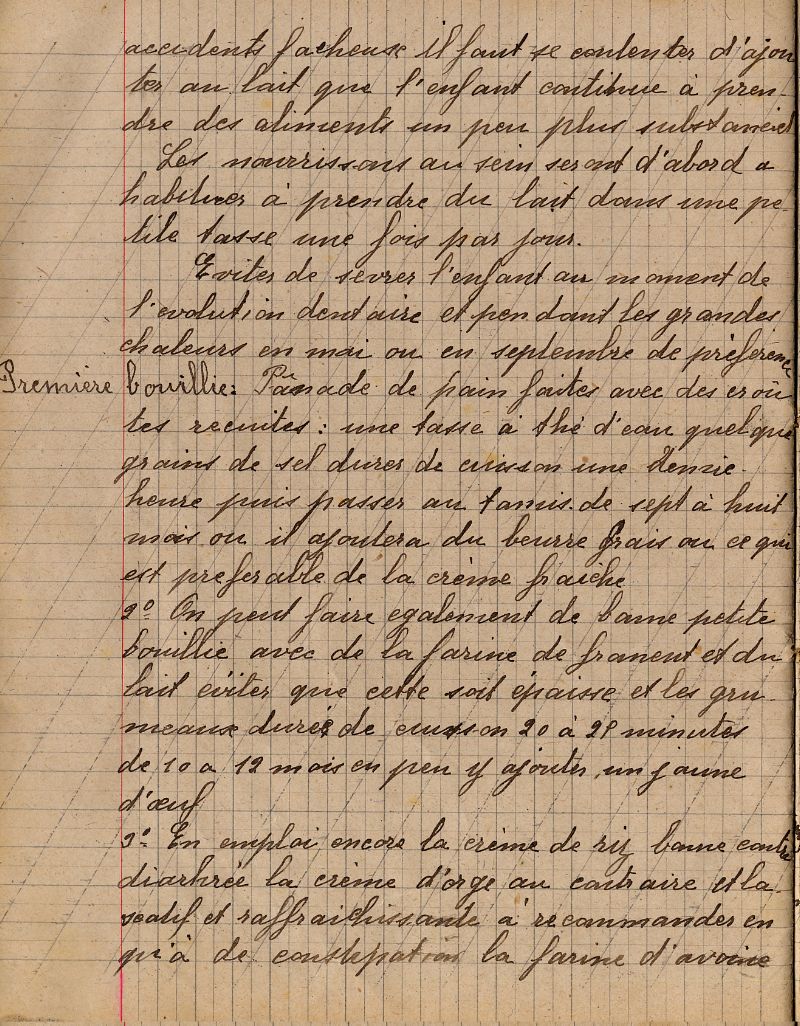 accidents facheuse il faut se contenter d'ajou
ter au lait que l'enfant continue à pren-
dre des aliments un peu plus substanciel
Les nourrissons au sein seront d'abord a
habituer à prendre du lait dans une pe-
tite tasse une fois par jour.
Eviter de sevrer l'enfant au moment de
l'evolution dentaire et pendant les grandes
chaleurs en mai ou en septembre de préférence
Première bouillie: Panade de pain faites avec des croû
tes recuites: une tasse à thé d'eau quelque
grains de sel durer de cuisson une demie-
heure puis passer au tamis. de sept à huit
mois ou il ajoutera du beurre frais ou ce qui
est preferable de la crème fraiche
2º On peut faire egalement de bonne petite
bouillie avec de la farine de froment et du
lait eviter que cette soit épaisse et les gru-
meaux durée de cuisson 20 à 25 minutes
de 10 a 12 mois en peu y ajouter un jaune
d'œuf
3º En emploi encore la crème de riz bonne contre
diarhrée la crème d'orge au contraire et la-
xatif et raffraichissante à recommander en
qu'à de constepation la farine d'avoine